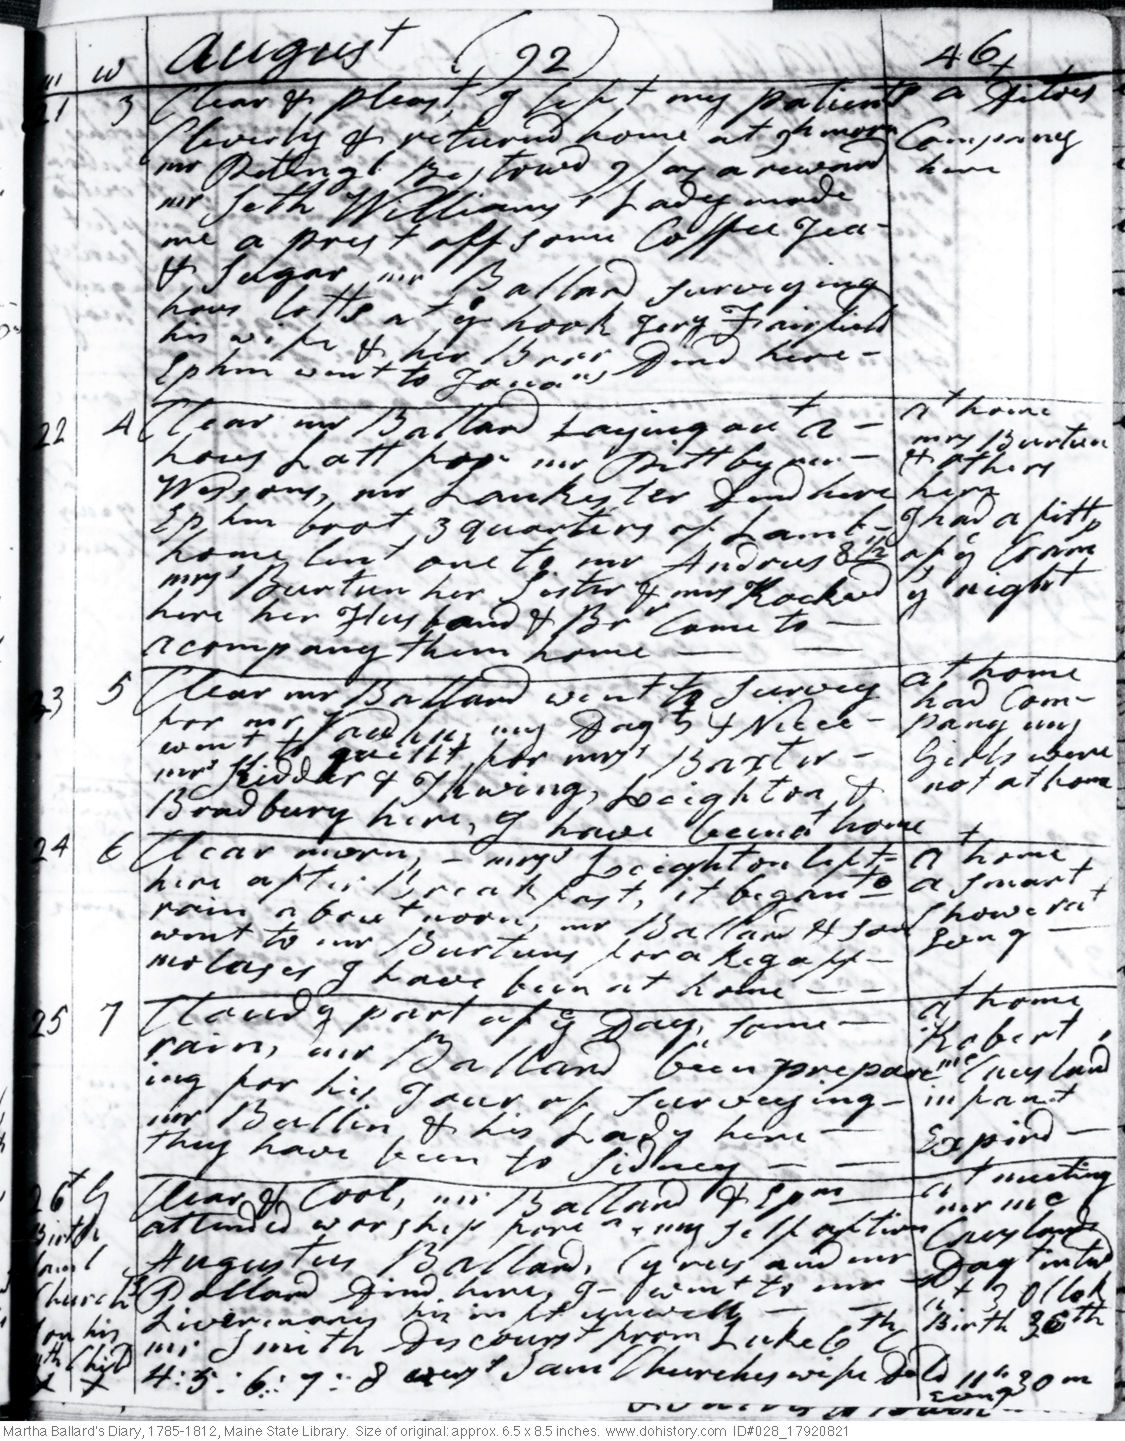 m w August (92) 46
21 3 Clear & pleast, I left my patient
Cleverly & returnd home at 9h morn
mr Petingl Bestowd 9/ as a reward
mr Seth Williams' Lady made
me a prest off some Coffee Tea
& Sugar mr Ballard surveying
hous lotts at ye hook Jery Fairfield
his wife & her Bror Dind here -
Ephm went to
a Titos
Company
here
22 4 Clear mr Ballard Laying out a -
hous Lott for mr Pitt by mr -
Wessons, mr Lankester Dind here
Ephm brot 3 quarters of Lamb
home lent one to mr Andrus 8 lb 1/2
mrs Burtun her Sister & mrs Rockwd
here her Husband & Br Come to -
acompany them home
at home
mrs Burtun
& others
here
I had a fitt
of ye Cramp
ye night
23 5 Clear mr Ballard went to Survey
for mr my Dagts & Niece -
went to quillt for mrs Baxter -
mrs Kidder & Thwing, Leighton &
Bradbury here, I have been at home
at home
had Com-
pany my
Girls were
not at home
24 6 Clear morn, - mrs Leighton left
here after Breakfast, it began to
rain about noon, mr Ballard & Son
went to mr Burtuns for a keg off -
molases I have been at home - -
at home
a smart
showr at
Evng -
25 7 Cloudy part of ye Day, some -
rain, mr Ballard been prepare
ing for his Tour of surveying -
mr Ballin & his Lady here -
they have been to Sidney - -
at home
Robert
mc Causland
infant
Expird -
26 G Clear & Cool, mr Ballard & Epm
attended worship fore n, my self aftern
Augustus Ballard, Cyrus and mr
Pollard Dind here, I went to mr
Livermores his inft unwell - -
mr Smith Discourst from Luke 6th C
4:5:6:7:8 verst Sam Churches wife Deld 11h 30m
Evng
at meeting
mr mc
Causlands
Dagt intrd
at 3 Ollok
Birth 36th
Birth
Saml
Church's
son his
4th Child
x x
Martha Ballard's Diary, 1785-1812, Maine State Library. Size of original: approx. 6.5 x 8.5 inches. www.dohistory.com ID#028_17920821